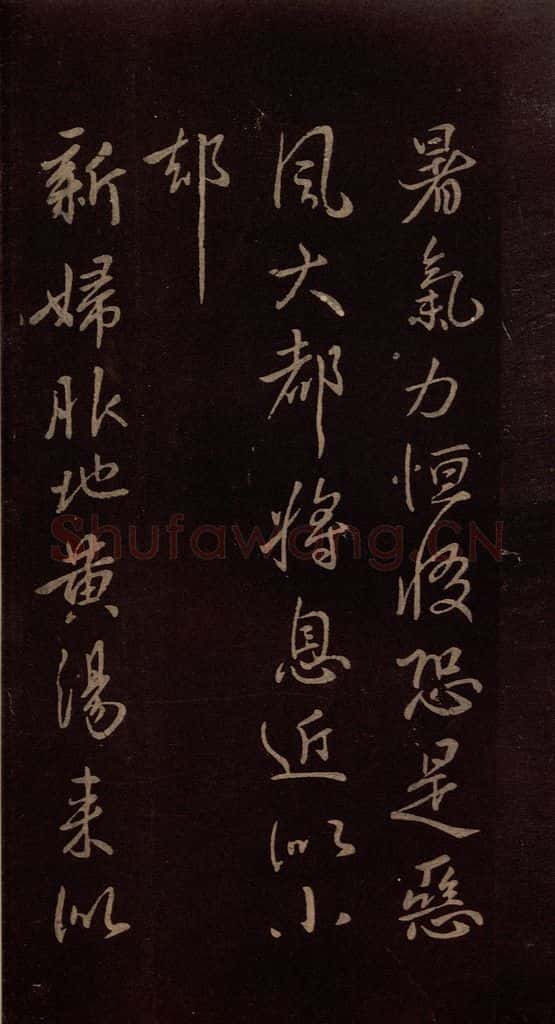 暑氣力恒惙恐是惡
風大都將息近似小
却
新婦服地黃湯来似
Shufawang.CN